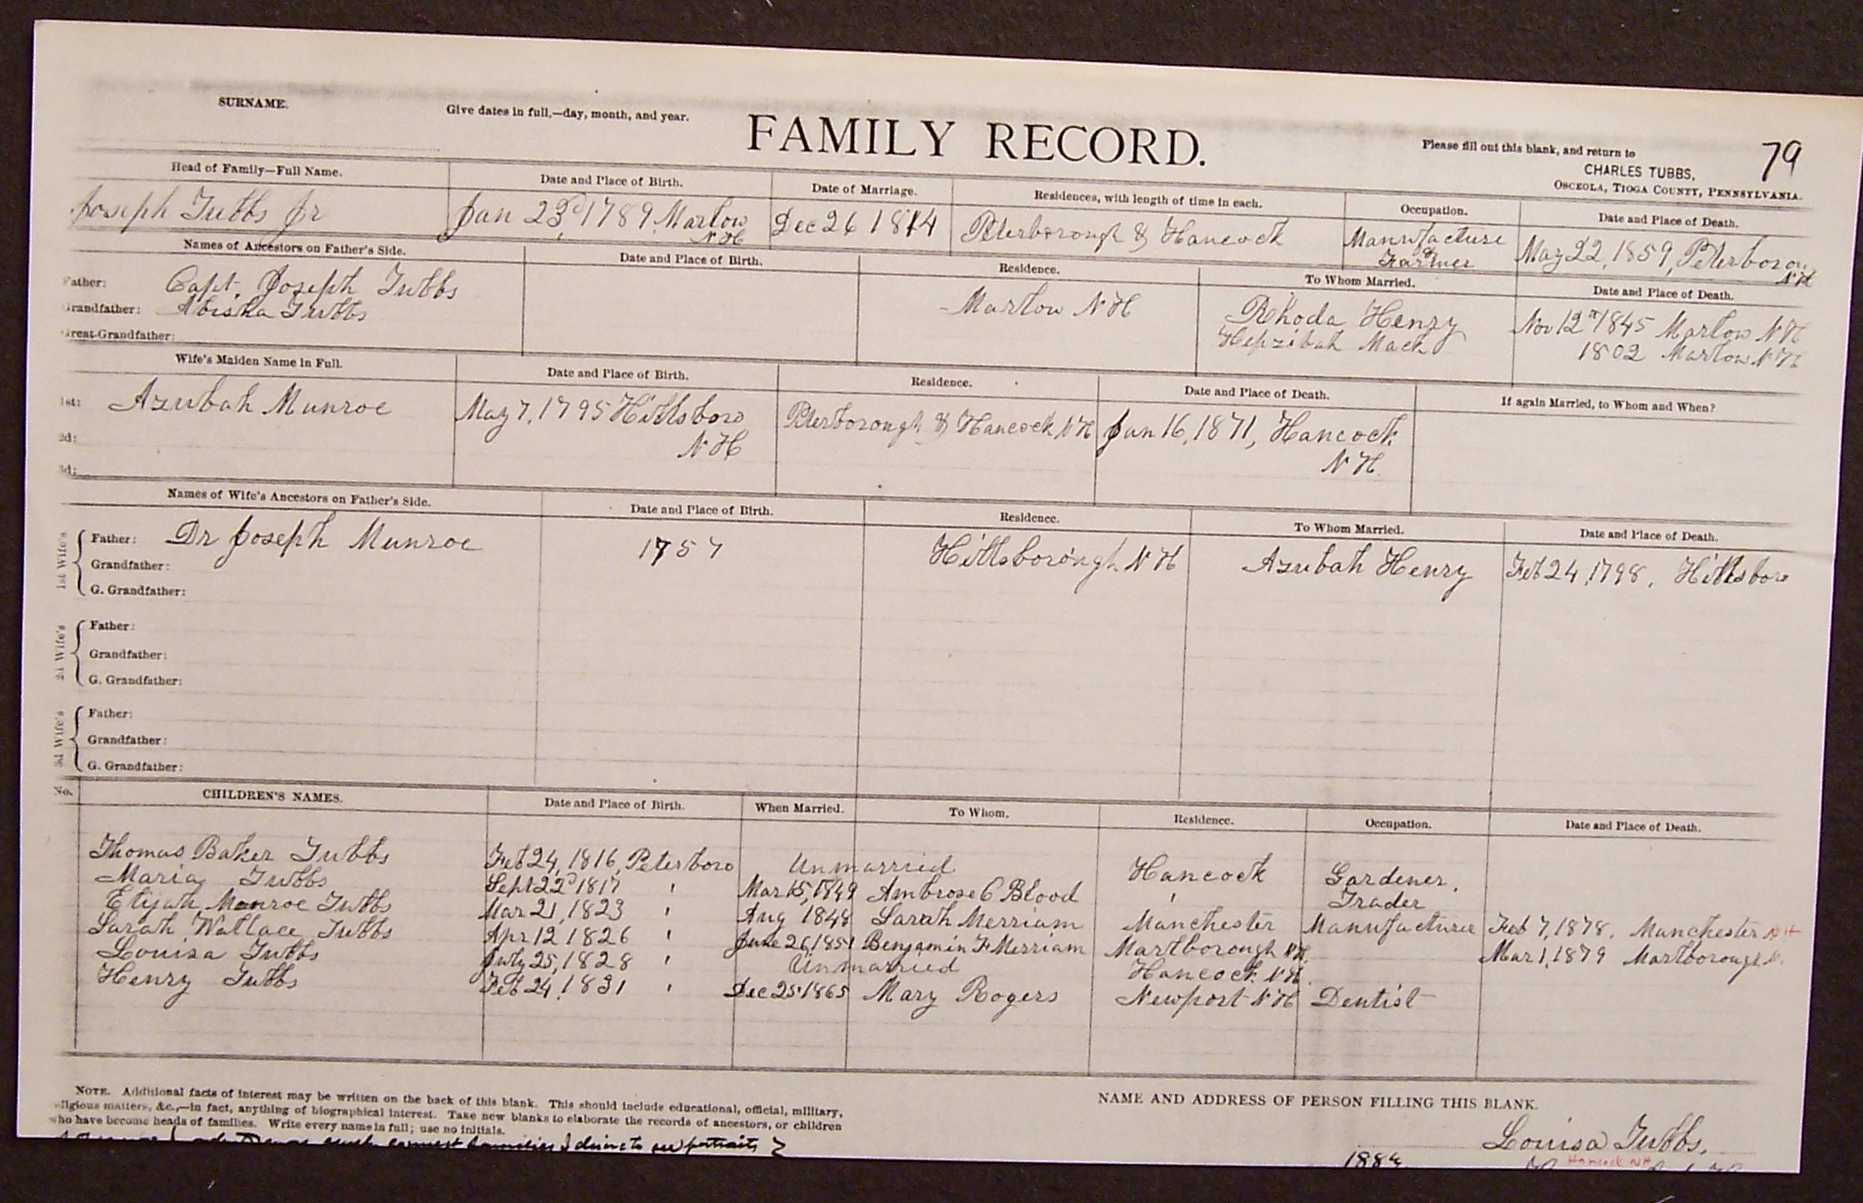 SURNAME.
Give dates in full,—day, month, and year.
FAMILY RECORD.
Please fill out this blank, and return to
CHARLES TUBBS,
OSCEOLA, TIOGA COUNTY, PENNSYLVANIA.
79
Head of Family—Full Name. Date and Place of Birth. Date of Marriage. Residences, with length of time in each. Occupation. Date and Place of Death.
Joseph Tubbs Jr Jan 23d, 1789, Marlow Dec 26 1814 Peterborough & Hancock Manufacture May 22, 1859, Peterboro
N H & Farmer N H
Names of Ancestors on Father's Side. Date and Place of Birth. Residence. To Whom Married. Date and Place of Death.
Father: Capt Joseph Tubbs Marlow N H Rhoda Henry Nov 12th 1845 Marlow N H
Grandfather: Abisha Tubbs Hepzibah Mack 1802 Marlow N H
Great-Grandfather:
Wife's Maiden Name in Full. Date and Place of Birth. Residence. Date and Place of Death. If again Married, to Whom and When?
1st: Azubah Munroe May 7, 1795 Hillsboro Peterborough & Hancock N H Jan 16, 1871, Hancock
2d: N H N H.
3d:
Names of Wife's Ancestors on Father's Side. Date and Place of Birth. Residence. To Whom Married. Date and Place of Death.
1st Wife's Father: Dr Joseph Munroe 1757 Hillsborough N H Azubah Henry Feb 24, 1798, Hillsboro
Grandfather:
G. Grandfather:
2d Wife's Father:
Grandfather:
G. Grandfather:
3d Wife's Father:
Grandfather:
G. Grandfather:
No. CHILDREN'S NAMES. Date and Place of Birth. When Married. To Whom. Residence. Occupation. Date and Place of Death.
Thomas Baker Tubbs Feb 24, 1816, Peterboro Unmarried Hancock Gardener,
Maria Tubbs Sept 22d 1817 " Mar 15, 1849 Ambrose C Blood " Trader
Elijah Monroe Tubbs Mar 21, 1823 " Aug 1848 Sarah Merriam Manchester Manufacturer Feb 7, 1878, Manchester N H
Sarah Wallace Tubbs Apr 12 1826 " June 26, 1851 Benjamin F Merriam Marlborough N H. Mar 1, 1879 Marlborough N.
Louisa Tubbs July 25, 1828 " Unmarried Hancock N H.
Henry Tubbs Feb 24, 1831 " Dec 25 1865 Mary Rogers Newport N H Dentist
NOTE. Additional facts of interest may be written on the back of this blank. This should include educational, official, military,
religious matters, &c.,—in fact, anything of biographical interest. Take new blanks to elaborate the records of ancestors, or children
who have become heads of families. Write every name in full; use no initials.
NAME AND ADDRESS OF PERSON FILLING THIS BLANK.
Louisa Tubbs.
Hancock NH